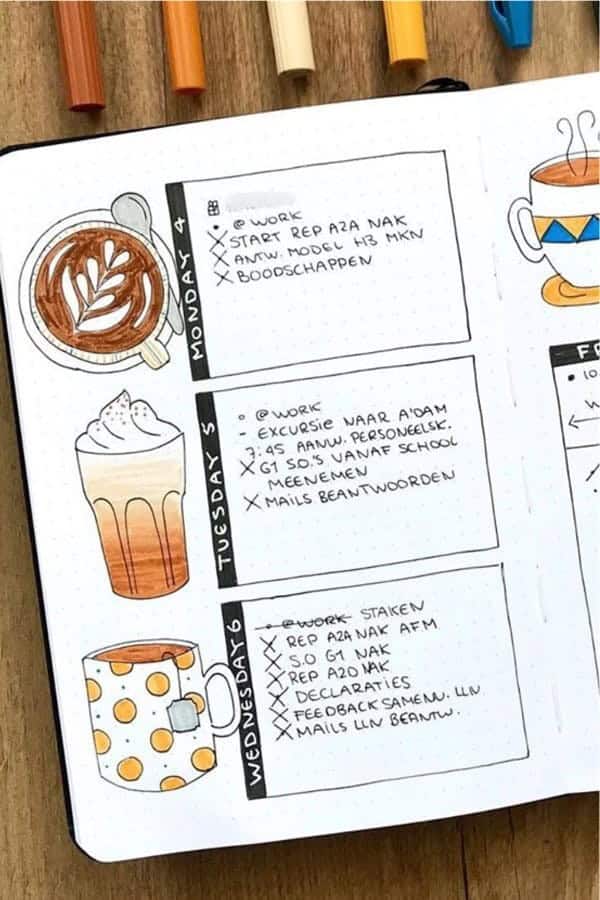 MONDAY 4
• @ WORK
X START REP A2A NAK
X ANTW. MODEL H3 MKN
X BOODSCHAPPEN
TUESDAY 5
◦ @WORK
- EXCURSIE NAAR A'DAM
7:45 AANW. PERSONEELSK.
X G1 S.O.'S VANAF SCHOOL
MEENEMEN
X MAILS BEANTWOORDEN
WEDNESDAY 6
• @WORK STAKEN
X REP A2A NAK AFM
X S.O G1 NAK
X REP A2D NAK
X DECLARATIES
X FEEDBACK SAMENV. LLN
X MAILS LLN BEANTW.
FR
• 10.
W